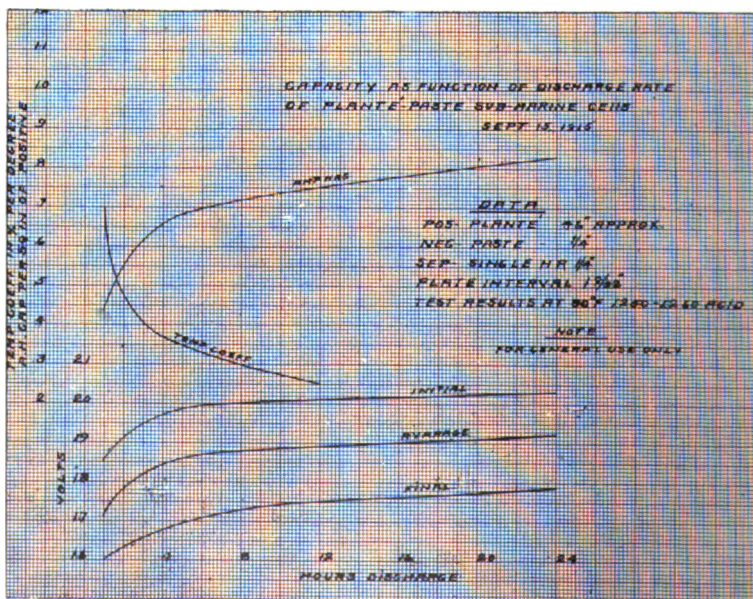 1.1
1.0
.9
.8
.7
.6
.5
.4
.3
.2
TEMP COEFF IN % PER DEGREE
A.H. CAP PER SQ IN OF POSITIVE
CAPACITY AS FUNCTION OF DISCHARGE RATE
OF PLANTÉ PASTE SUB-MARINE CELLS
SEPT 15 1915
AMP HRS
DATA
POS- PLANTE APPROX.
NEG- PASTE -
SEP- SINGLE H R 1/4"
PLATE INTERVAL
TEST RESULTS AT ACID
NOTE
FOR GENERAL USE ONLY
TEMP. COEFF
INITIAL
AVERAGE
FINAL
2.1
2.0
1.9
1.8
1.7
1.6
VOLTS
4
8
12
16
20
24
HOURS DISCHARGE